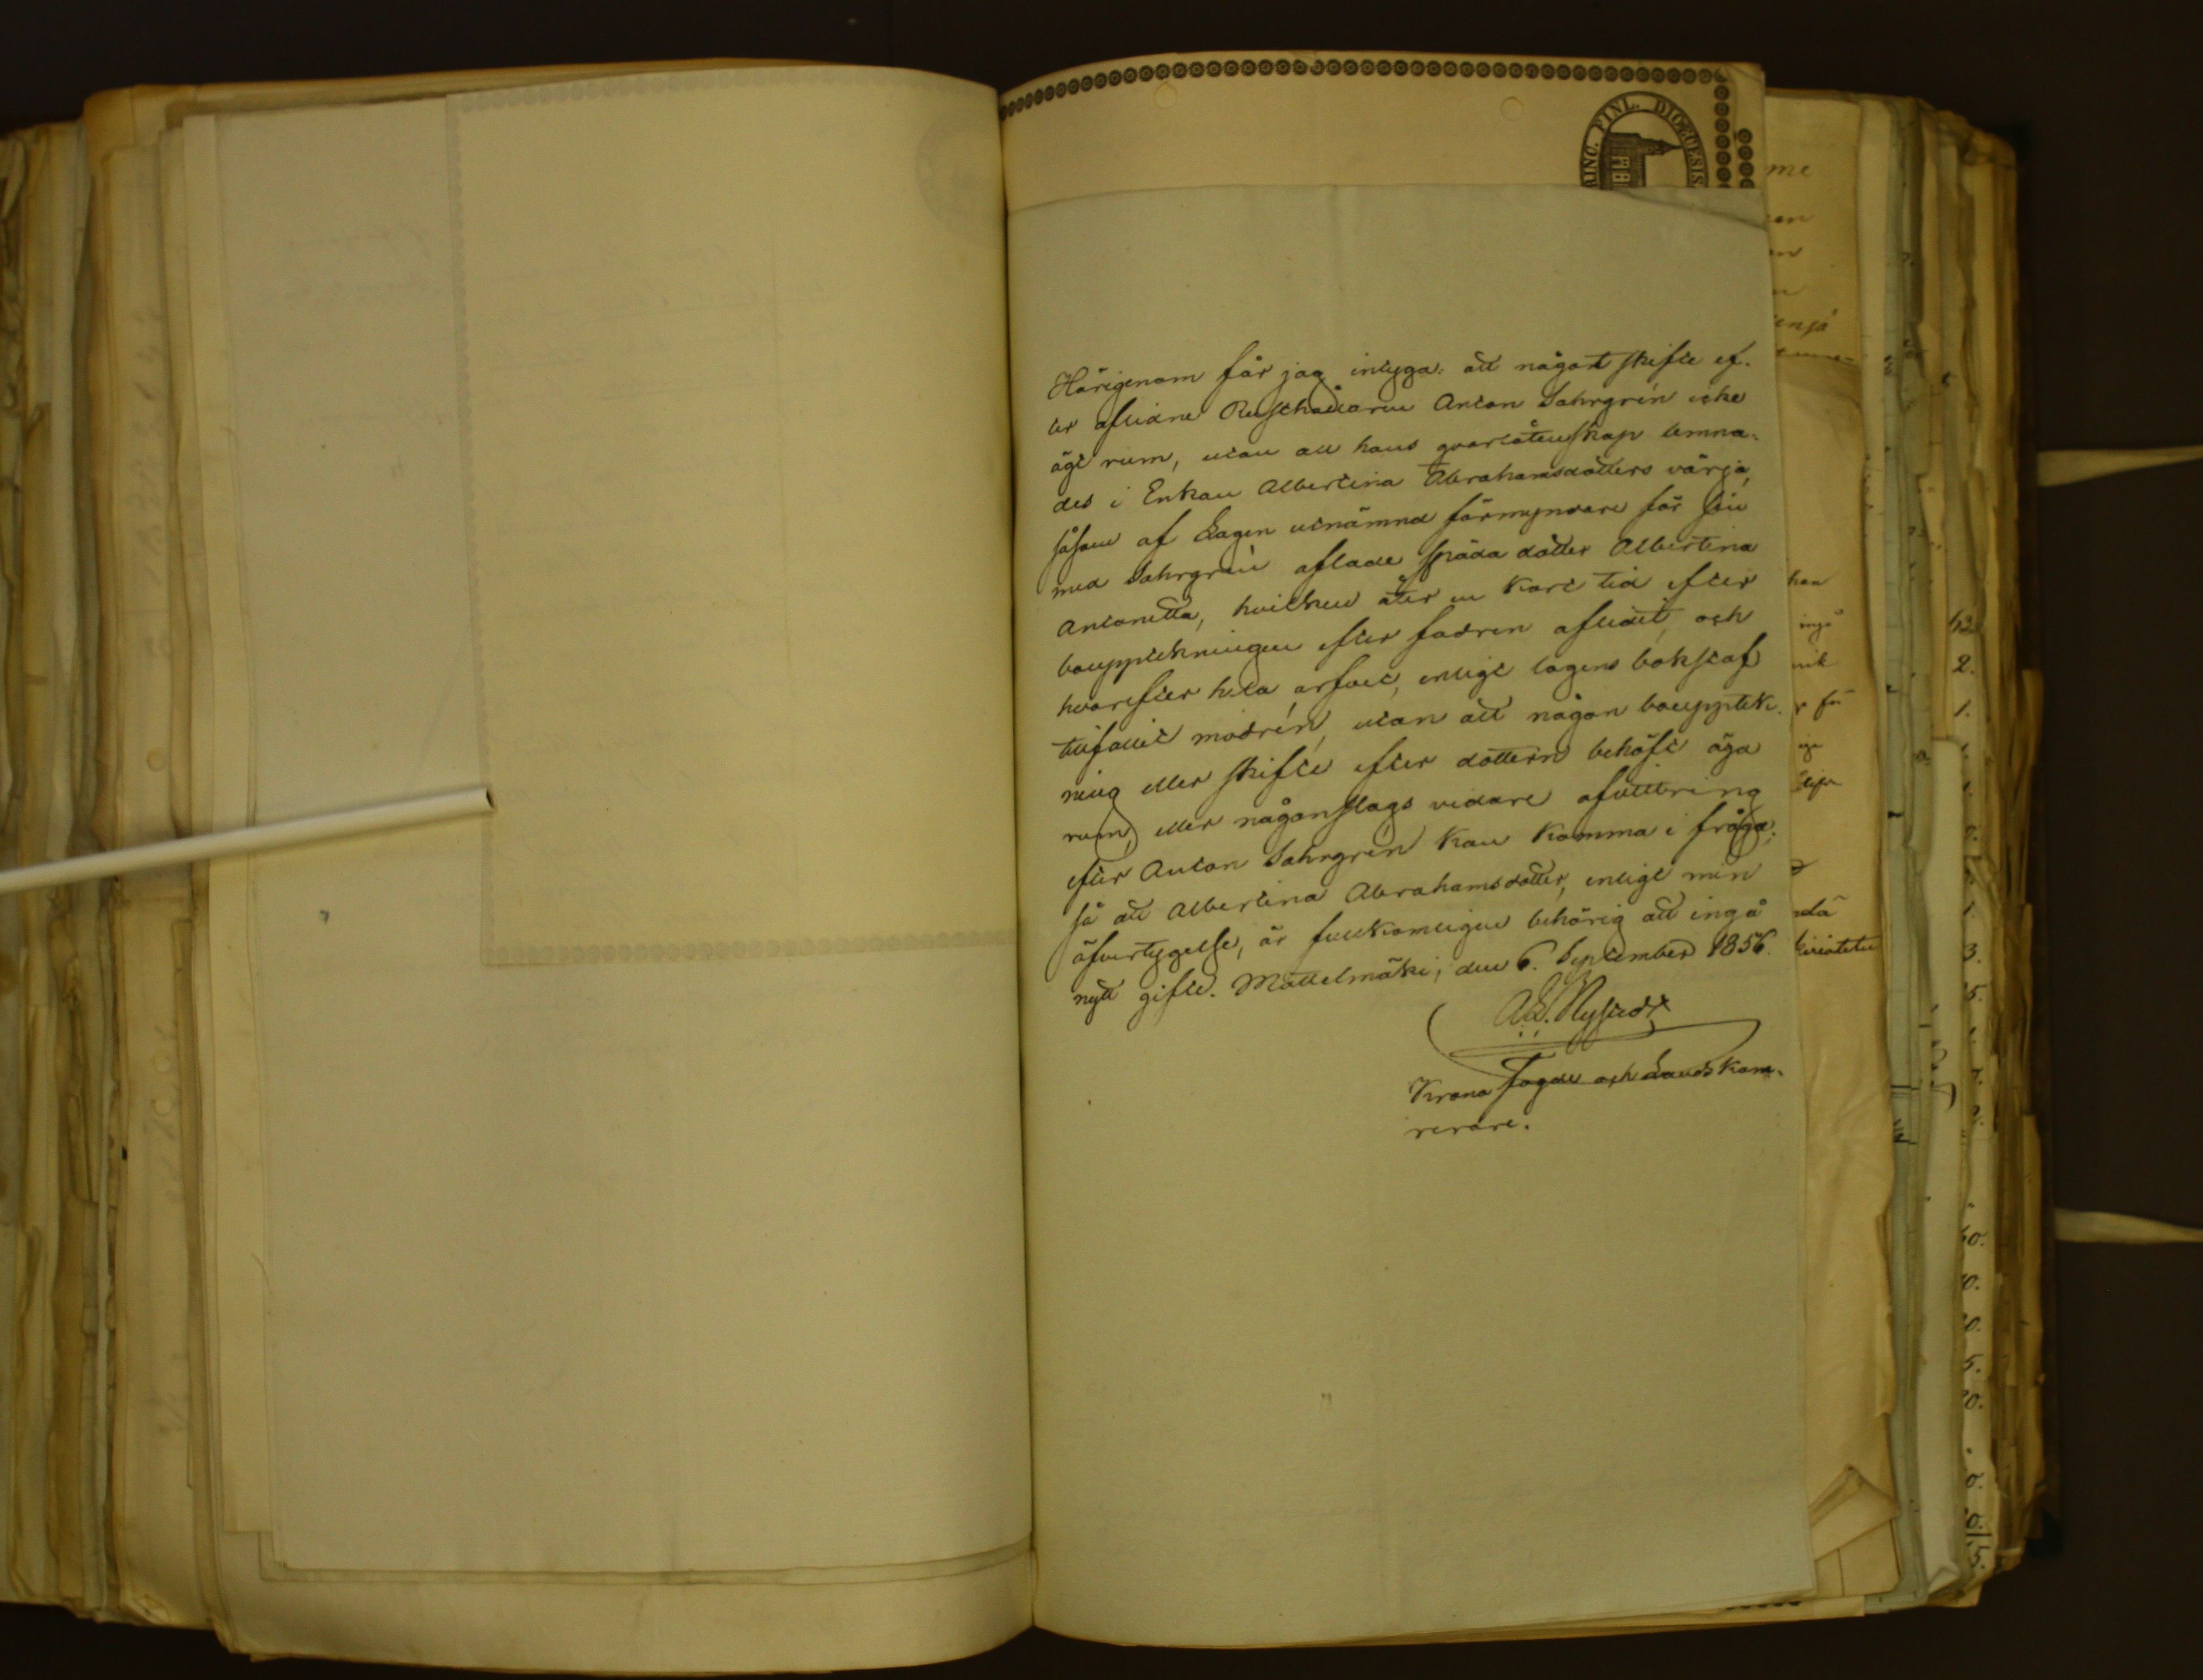 RINC. FINL. DIOECESIS
Härigenom får jag intyga: att något skifte ef-
ter aflidne Rusthållaren Anton Sahrgrén icke
ägt rum, utan att hans qvarlåtenskap lemna-
des i Enkan Albertina Abrahamsdotters värjo,
såsom af Lagen utnämnd förmyndare för sin
med Sahrgrén aflade späda dotter Albertina
Antonetta, hvilken åter en kort tid efter
bouppteckningen efter fadren aflidit, och
hvarefter hela arfvet, enligt lagens bokstaf
tillfallit modren, utan att någon bouppteck-
ning eller skifte efter dottern behöft äga
rum, eller någonslags vidare afvittring
efter Anton Sahrgrén kan komma i fråga;
så att Albertina Abrahamsdotter, enligt min
öfvertygelse, är fullkomligen behörig att ingå
nytt gifte. Mottelmäki, den 6. September 1856.
Nystedt
Krono fogde och Landskam-
rerare.